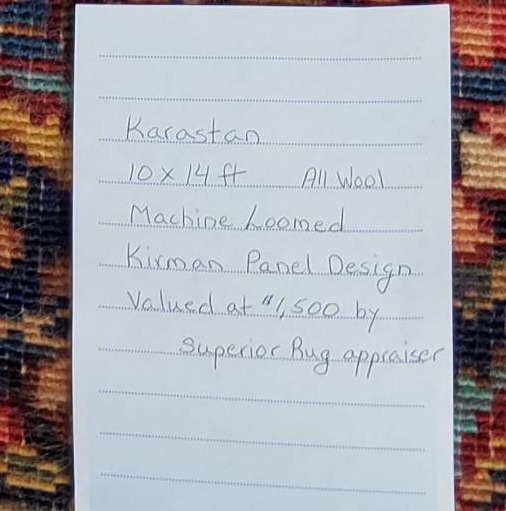 Karastan
10 x 14 ft All Wool
Machine Loomed
Kirman Panel Design
Valued at $1,500 by
Superior Rug appraiser